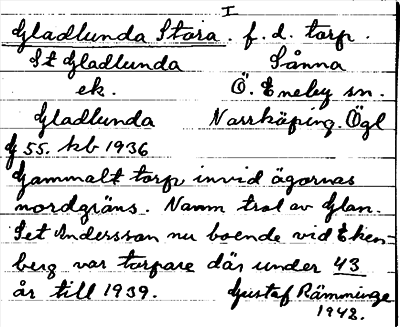 I
Gladlunda Stora. f. d. torp.
St Gladlunda Sånna
ek. Ö. Eneby sn.
Gladlunda Norrköping. Ögl
G 55. kb 1936
Gammalt torp invid ägornas
nordgräns. Namn trol av Glan.
Set Andersson nu boende vid Eken-
berg var torpare där under 43
år till 1939. Gustaf Rämminge
1948.